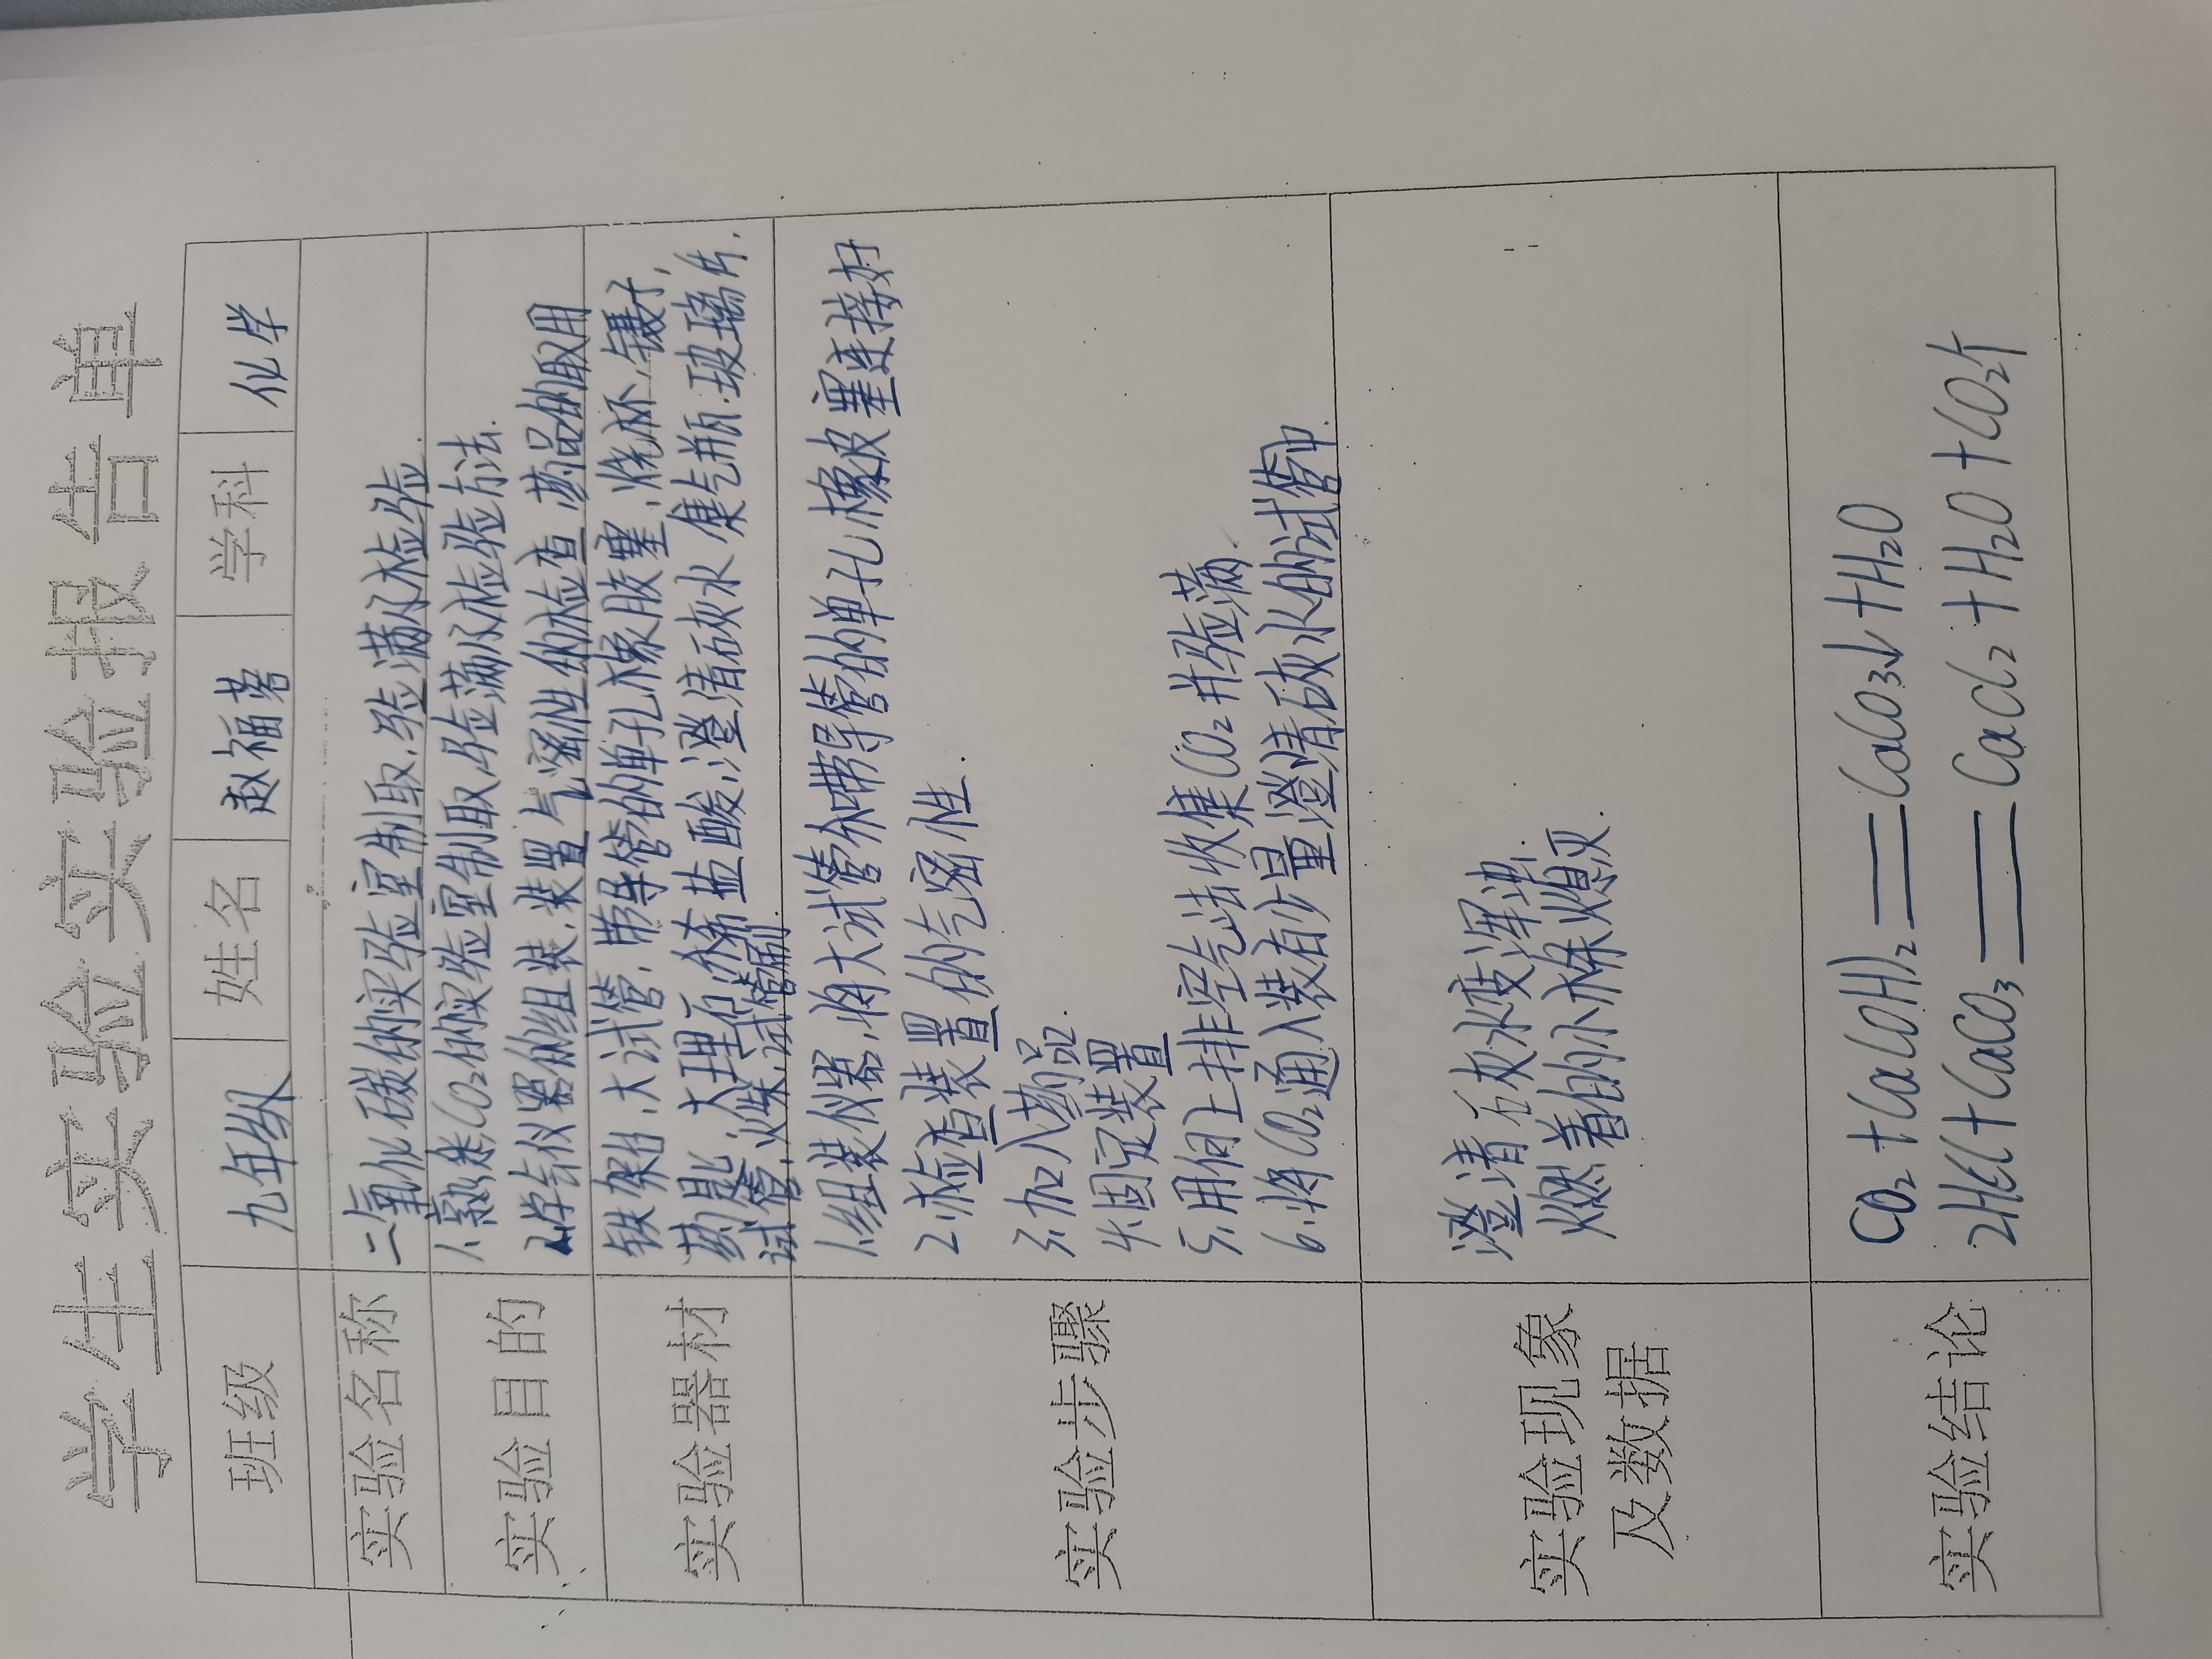 学生实验实验报告单
班级 九年级 姓名 赵福茗 学科 化学
实验名称 二氧化碳的实验室制取.验满及检验
实验目的 1.熟悉CO₂的实验室制取,验满及检验方法.
2.学会仪器的组装.装置气密性的检查.药品的取用
实验器材 铁架台、大试管、带导管的单孔橡胶塞、烧杯、镊子、
药匙、大理石、稀盐酸、澄清石灰水 集气瓶.玻璃片.
试管、火柴、试管刷.
实验步骤 1.组装仪器,将大试管和带导管的单孔橡皮塞连接好
2.检查装置的气密性.
3.加入药品.
4.固定装置
5.用向上排空气法收集CO₂并验满.
6.将CO₂通入装有少量澄清石灰水的试管中.
实验现象
及数据
澄清石灰水变浑浊.
燃着的小木条熄灭.
实验结论 CO₂+Ca(OH)₂=CaCO₃↓+H₂O
2HCl+CaCO₃=CaCl₂+H₂O+CO₂↑